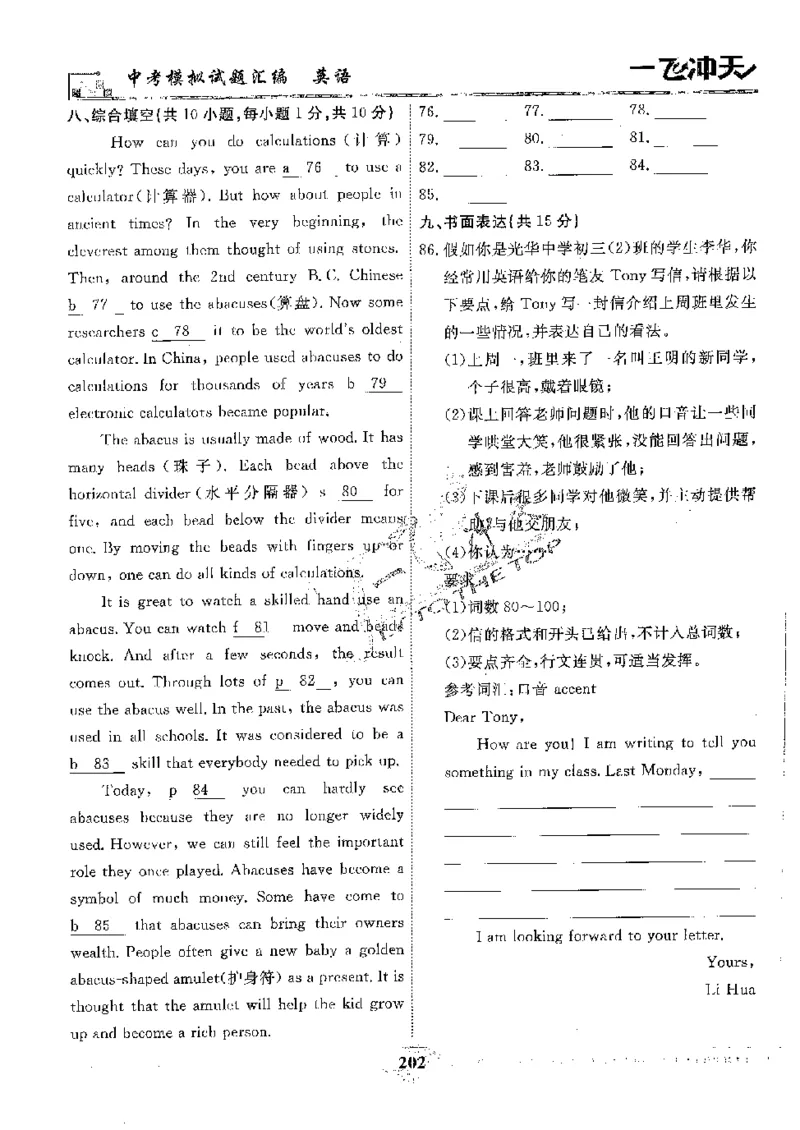 中考模拟试题汇编 英语
一飞冲天
八、综合填空(共 10 小题,每小题 1 分,共 10 分)
How can you do calculations (计算)
quickly? These days, you are a 76 to use a
calculator(计算器). But how about people in
ancient times? In the very beginning, the
cleverest among them thought of using stones.
Then, around the 2nd century B.C. Chinese
b 77 to use the abacuses(算盘). Now some
researchers c 78 it to be the world's oldest
calculator. In China, people used abacuses to do
calculations for thousands of years b 79
electronic calculators became popular.
The abacus is usually made of wood. It has
many beads (珠子). Each bead above the
horizontal divider(水平分隔器) s 80 for
five, and each bead below the divider means
one. By moving the beads with fingers up or
down, one can do all kinds of calculations.
It is great to watch a skilled hand use an
abacus. You can watch f 81 move and beads
knock. And after a few seconds, the result
comes out. Through lots of p 82 , you can
use the abacus well. In the past, the abacus was
used in all schools. It was considered to be a
b 83 skill that everybody needed to pick up.
Today, p 84 you can hardly see
abacuses because they are no longer widely
used. However, we can still feel the important
role they once played. Abacuses have become a
symbol of much money. Some have come to
b 85 that abacuses can bring their owners
wealth. People often give a new baby a golden
abacus-shaped amulet(护身符) as a present. It is
thought that the amulet will help the kid grow
up and become a rich person.
76. 77. 78.
79. 80. 81.
82. 83. 84.
85.
九、书面表达(共 15 分)
86. 假如你是光华中学初三(2)班的学生李华,你
经常用英语给你的笔友 Tony 写信,请根据以
下要点,给 Tony 写一封信介绍上周班里发生
的一些情况,并表达自己的看法。
(1)上周一,班里来了一名叫王明的新同学,
个子很高,戴着眼镜;
(2)课上回答老师问题时,他的口音让一些同
学哄堂大笑,他很紧张,没能回答出问题,
感到害羞,老师鼓励了他;
(3)下课后很多同学对他微笑,并主动提供帮
助,与他交朋友;
(4)你认为……
要求:
TO THE TOP
(1)词数 80~100;
(2)信的格式和开头已给出,不计入总词数;
(3)要点齐全,行文连贯,可适当发挥。
参考词汇:口音 accent
Dear Tony,
How are you! I am writing to tell you
something in my class. Last Monday,
I am looking forward to your letter.
Yours,
Li Hua
202